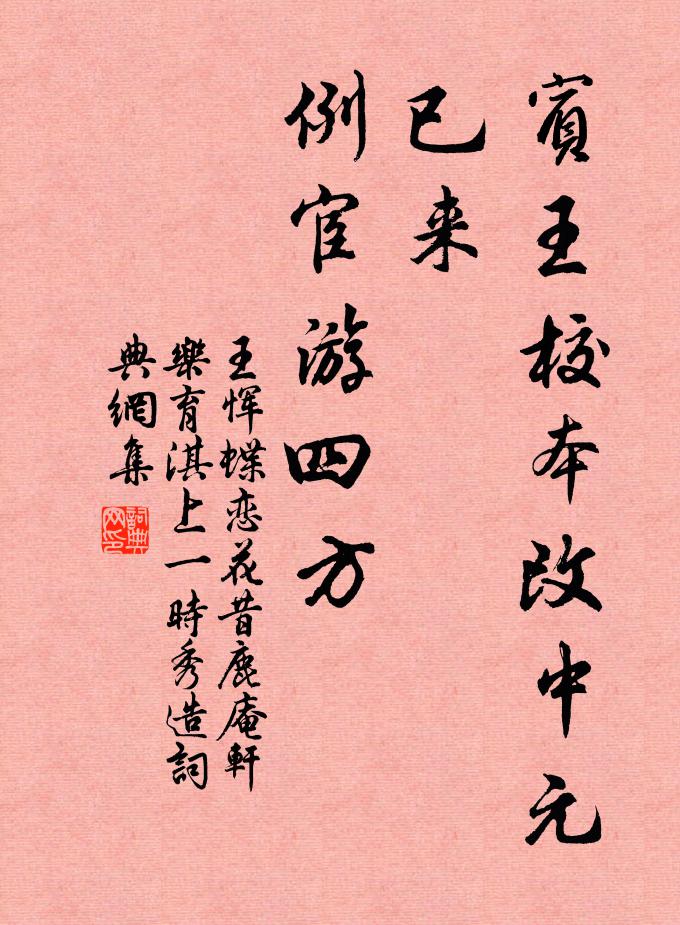 賓王校本改中元
已来
例宦游四方
王恽蝶恋花昔鹿庵軒
樂育淇上一時秀造詞
典網集
詞典网印